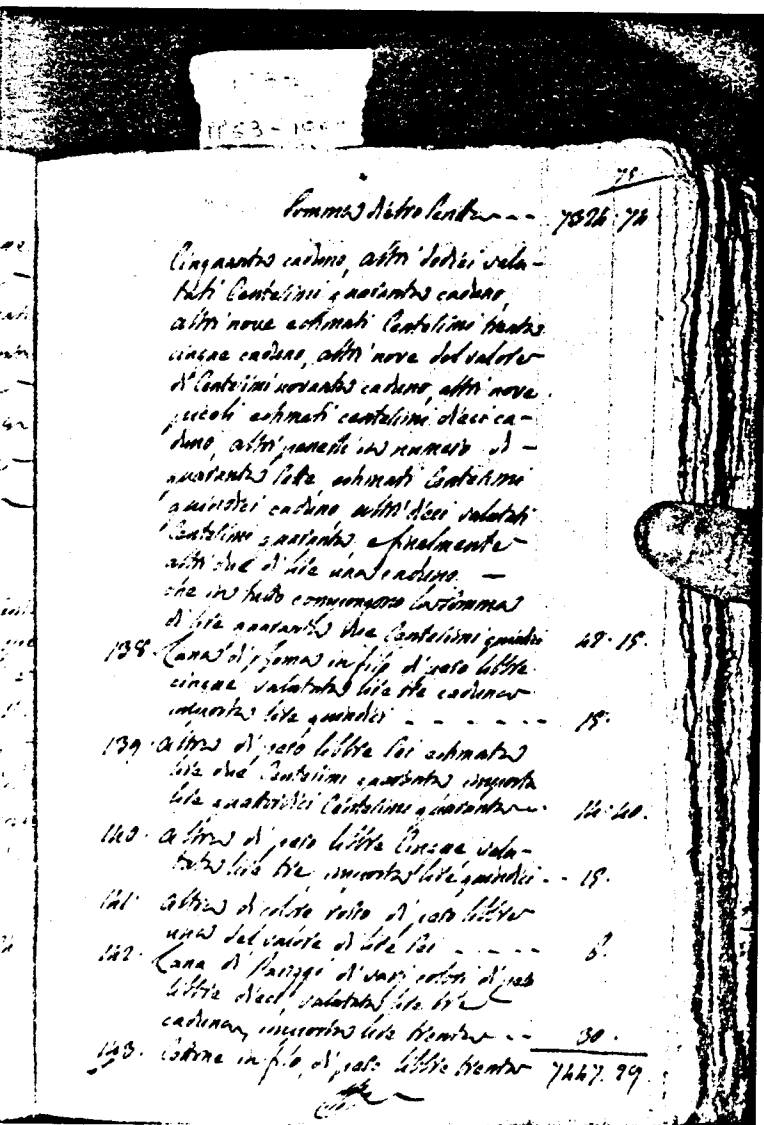 1853-19
75
Somma dietro scritta --- 7324.74
Cinquanta caduno, altri dodici valu-
tati Centesimi quaranta caduno,
altri nove estimati Centesimi trenta
cinque caduno, altri nove del valore
di Centesimi novanta caduno, altri nove
piccoli estimati centesimi dieci ca-
duno, altri in numero di -
quaranta sette estimati Centesimi
quindici caduno altri dieci valutati
Centesimi quaranta e finalmente
altri due di lire una caduno. -
che in tutto compiongono la somma
di lire quaranta due Centesimi quindici 42.15.
138. Lana di in filo di peso libbre
cinque, valutata lire tre caduna
importa lire quindici - - - - - - - 15.
139. Altra di peso libbre sei estimata
lire due Centesimi quaranta importa
lire quattordici Centesimi quaranta -- 14.40.
140. Altra di peso libbre Cinque valu-
tata lire tre, importa lire quindici - - 15.
141. Altra di colore rosso di peso libbre
una del valore di lire sei - - - - - 6.
142. Lana di di vari colori di peso
libbre dieci, valutata lire tre
caduna, importa lire trenta -- 30.
143. Cottone in filo, di peso libbre trenta 7447.29